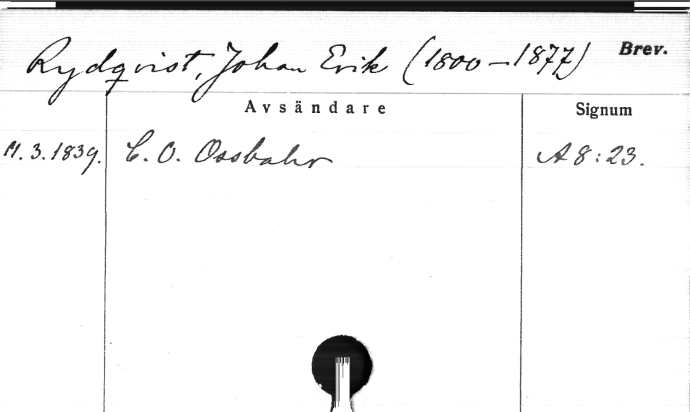 Rydqvist, Johan Erik (1800–1877) Brev.
Avsändare Signum
11.3.1839. C. O. Ossbahr A 8:23.